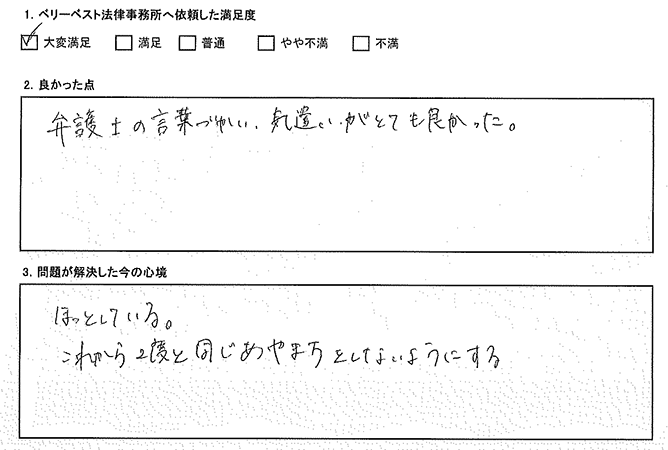 1. ベリーベスト法律事務所へ依頼した満足度
☑ 大変満足 □ 満足 □ 普通 □ やや不満 □ 不満
2. 良かった点
弁護士の言葉づかい、気遣いがとても良かった。
3. 問題が解決した今の心境
ほっとしている。
これから2度と同じあやまちをしないようにする